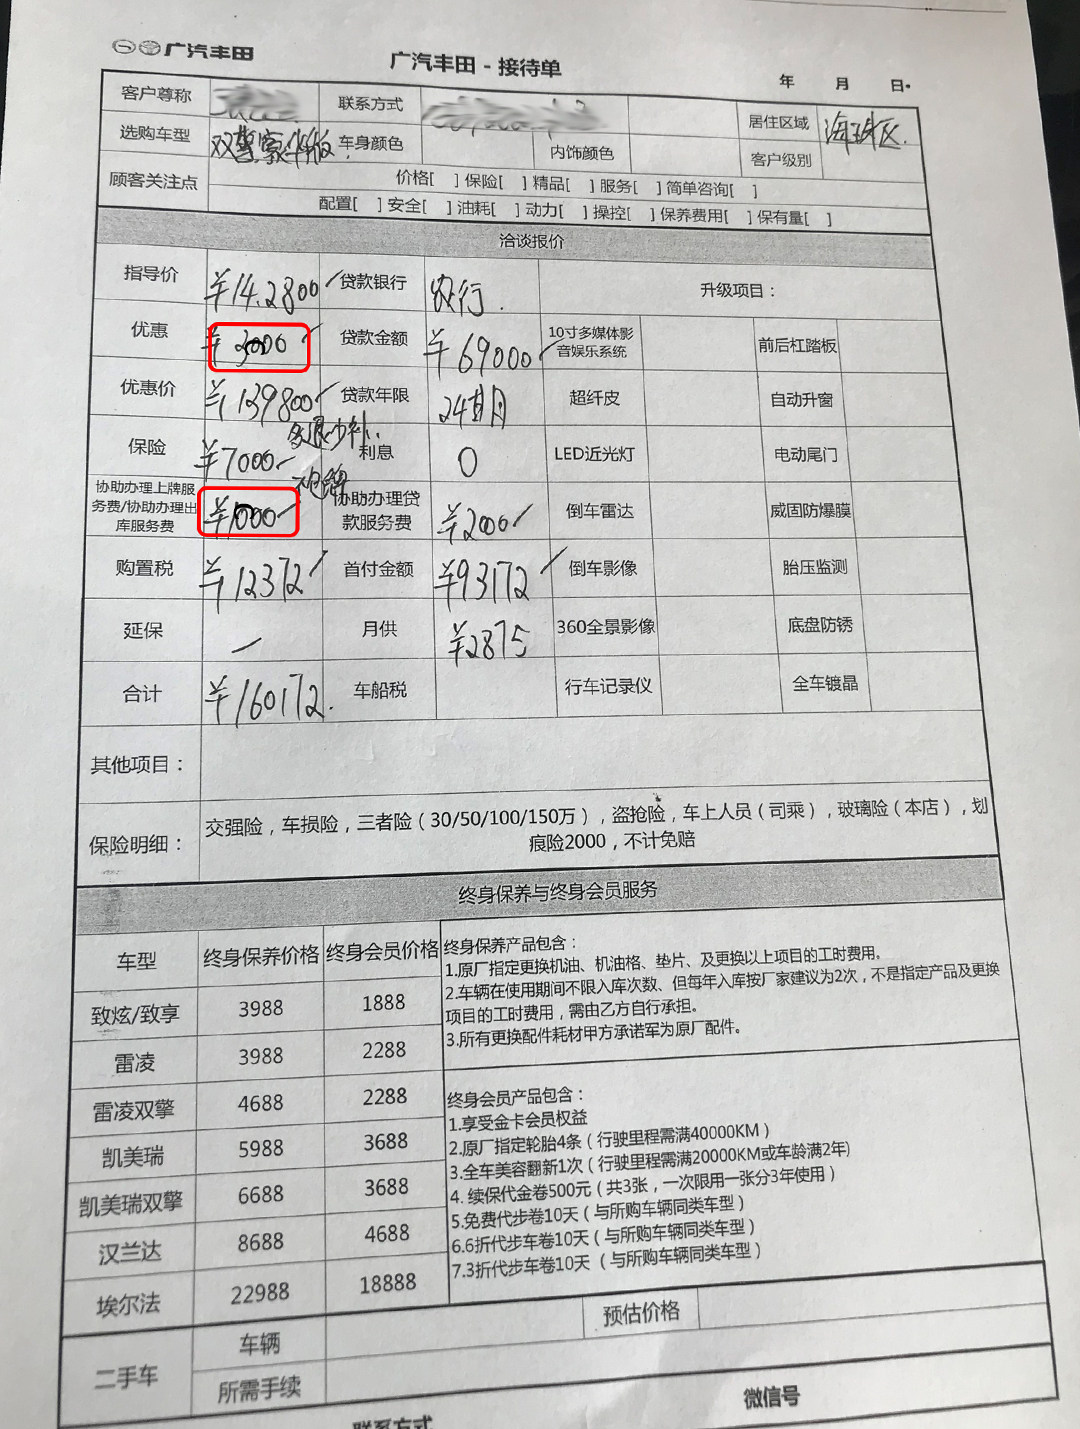 广汽丰田
广汽丰田 - 接待单
年 月 日
客户尊称 联系方式 居住区域 海珠区.
选购车型 双擎豪华版 车身颜色 内饰颜色 客户级别
顾客关注点 价格[ ] 保险[ ] 精品[ ] 服务[ ] 简单咨询[ ]
配置[ ] 安全[ ] 油耗[ ] 动力[ ] 操控[ ] 保养费用[ ] 保有量[ ]
洽谈报价
指导价 ¥14.2800 贷款银行 农行. 升级项目：
优惠 ¥3000 贷款金额 ¥69000 10寸多媒体影音娱乐系统 前后杠踏板
优惠价 ¥139800 贷款年限 24期 超纤皮 自动升窗
多退少补.
保险 ¥7000 利息 0 LED近光灯 电动尾门
协助办理上牌服务费/协助办理出库服务费 ¥1000 协助办理贷款服务费 ¥2000 倒车雷达 威固防爆膜
购置税 ¥12372 首付金额 ¥93172 倒车影像 胎压监测
延保 — 月供 ¥2875 360全景影像 底盘防锈
合计 ¥160172. 车船税 行车记录仪 全车镀晶
其他项目：
保险明细： 交强险，车损险，三者险（30/50/100/150万），盗抢险，车上人员（司乘），玻璃险（本店），划
痕险2000，不计免赔
终身保养与终身会员服务
车型 终身保养价格 终身会员价格
致炫/致享 3988 1888
雷凌 3988 2288
雷凌双擎 4688 2288
凯美瑞 5988 3688
凯美瑞双擎 6688 3688
汉兰达 8688 4688
埃尔法 22988 18888
终身保养产品包含：
1.原厂指定更换机油、机油格、垫片、及更换以上项目的工时费用。
2.车辆在使用期间不限入库次数、但每年入库按厂家建议为2次，不是指定产品及更换
项目的工时费用，需由乙方自行承担。
3.所有更换配件耗材甲方承诺军为原厂配件。
终身会员产品包含：
1.享受金卡会员权益
2.原厂指定轮胎4条（行驶里程需满40000KM）
3.全车美容翻新1次（行驶里程需满20000KM或车龄满2年)
4. 续保代金卷500元（共3张，一次限用一张分3年使用）
5.免费代步卷10天（与所购车辆同类车型）
6.6折代步车卷10天（与所购车辆同类车型）
7.3折代步车卷10天 （与所购车辆同类车型）
二手车 车辆 预估价格
所需手续
联系方式 微信号